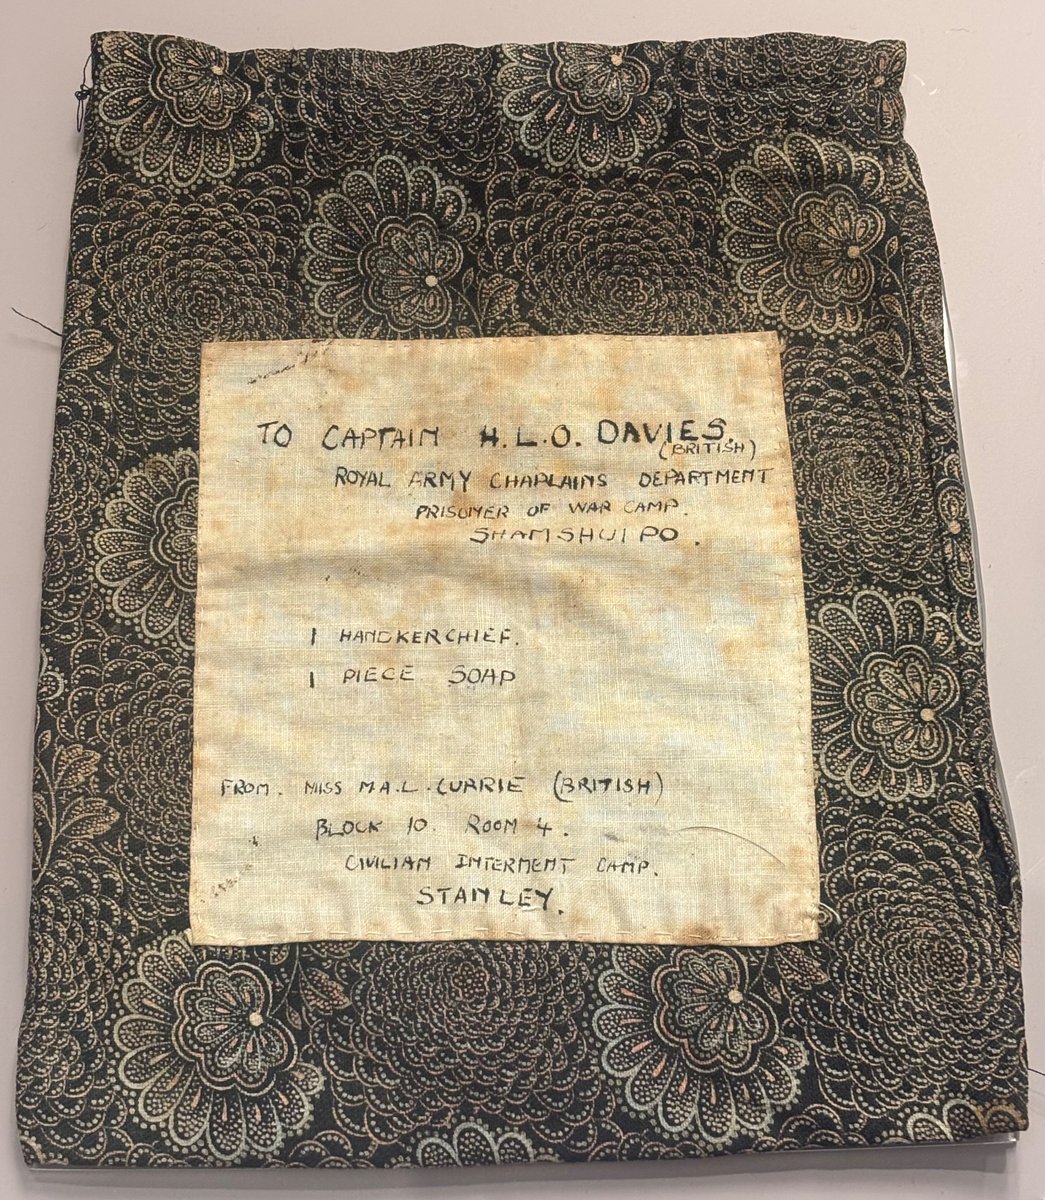 TO CAPTAIN H.L.O. DAVIES
(BRITISH)
ROYAL ARMY CHAPLAINS DEPARTMENT
PRISONER OF WAR CAMP.
SHAMSHUI PO.
1 HANDKERCHIEF.
1 PIECE SOAP
FROM. MISS M.A.L. CURRIE (BRITISH)
BLOCK 10. ROOM 4.
CIVILIAN INTERMENT CAMP.
STANLEY.